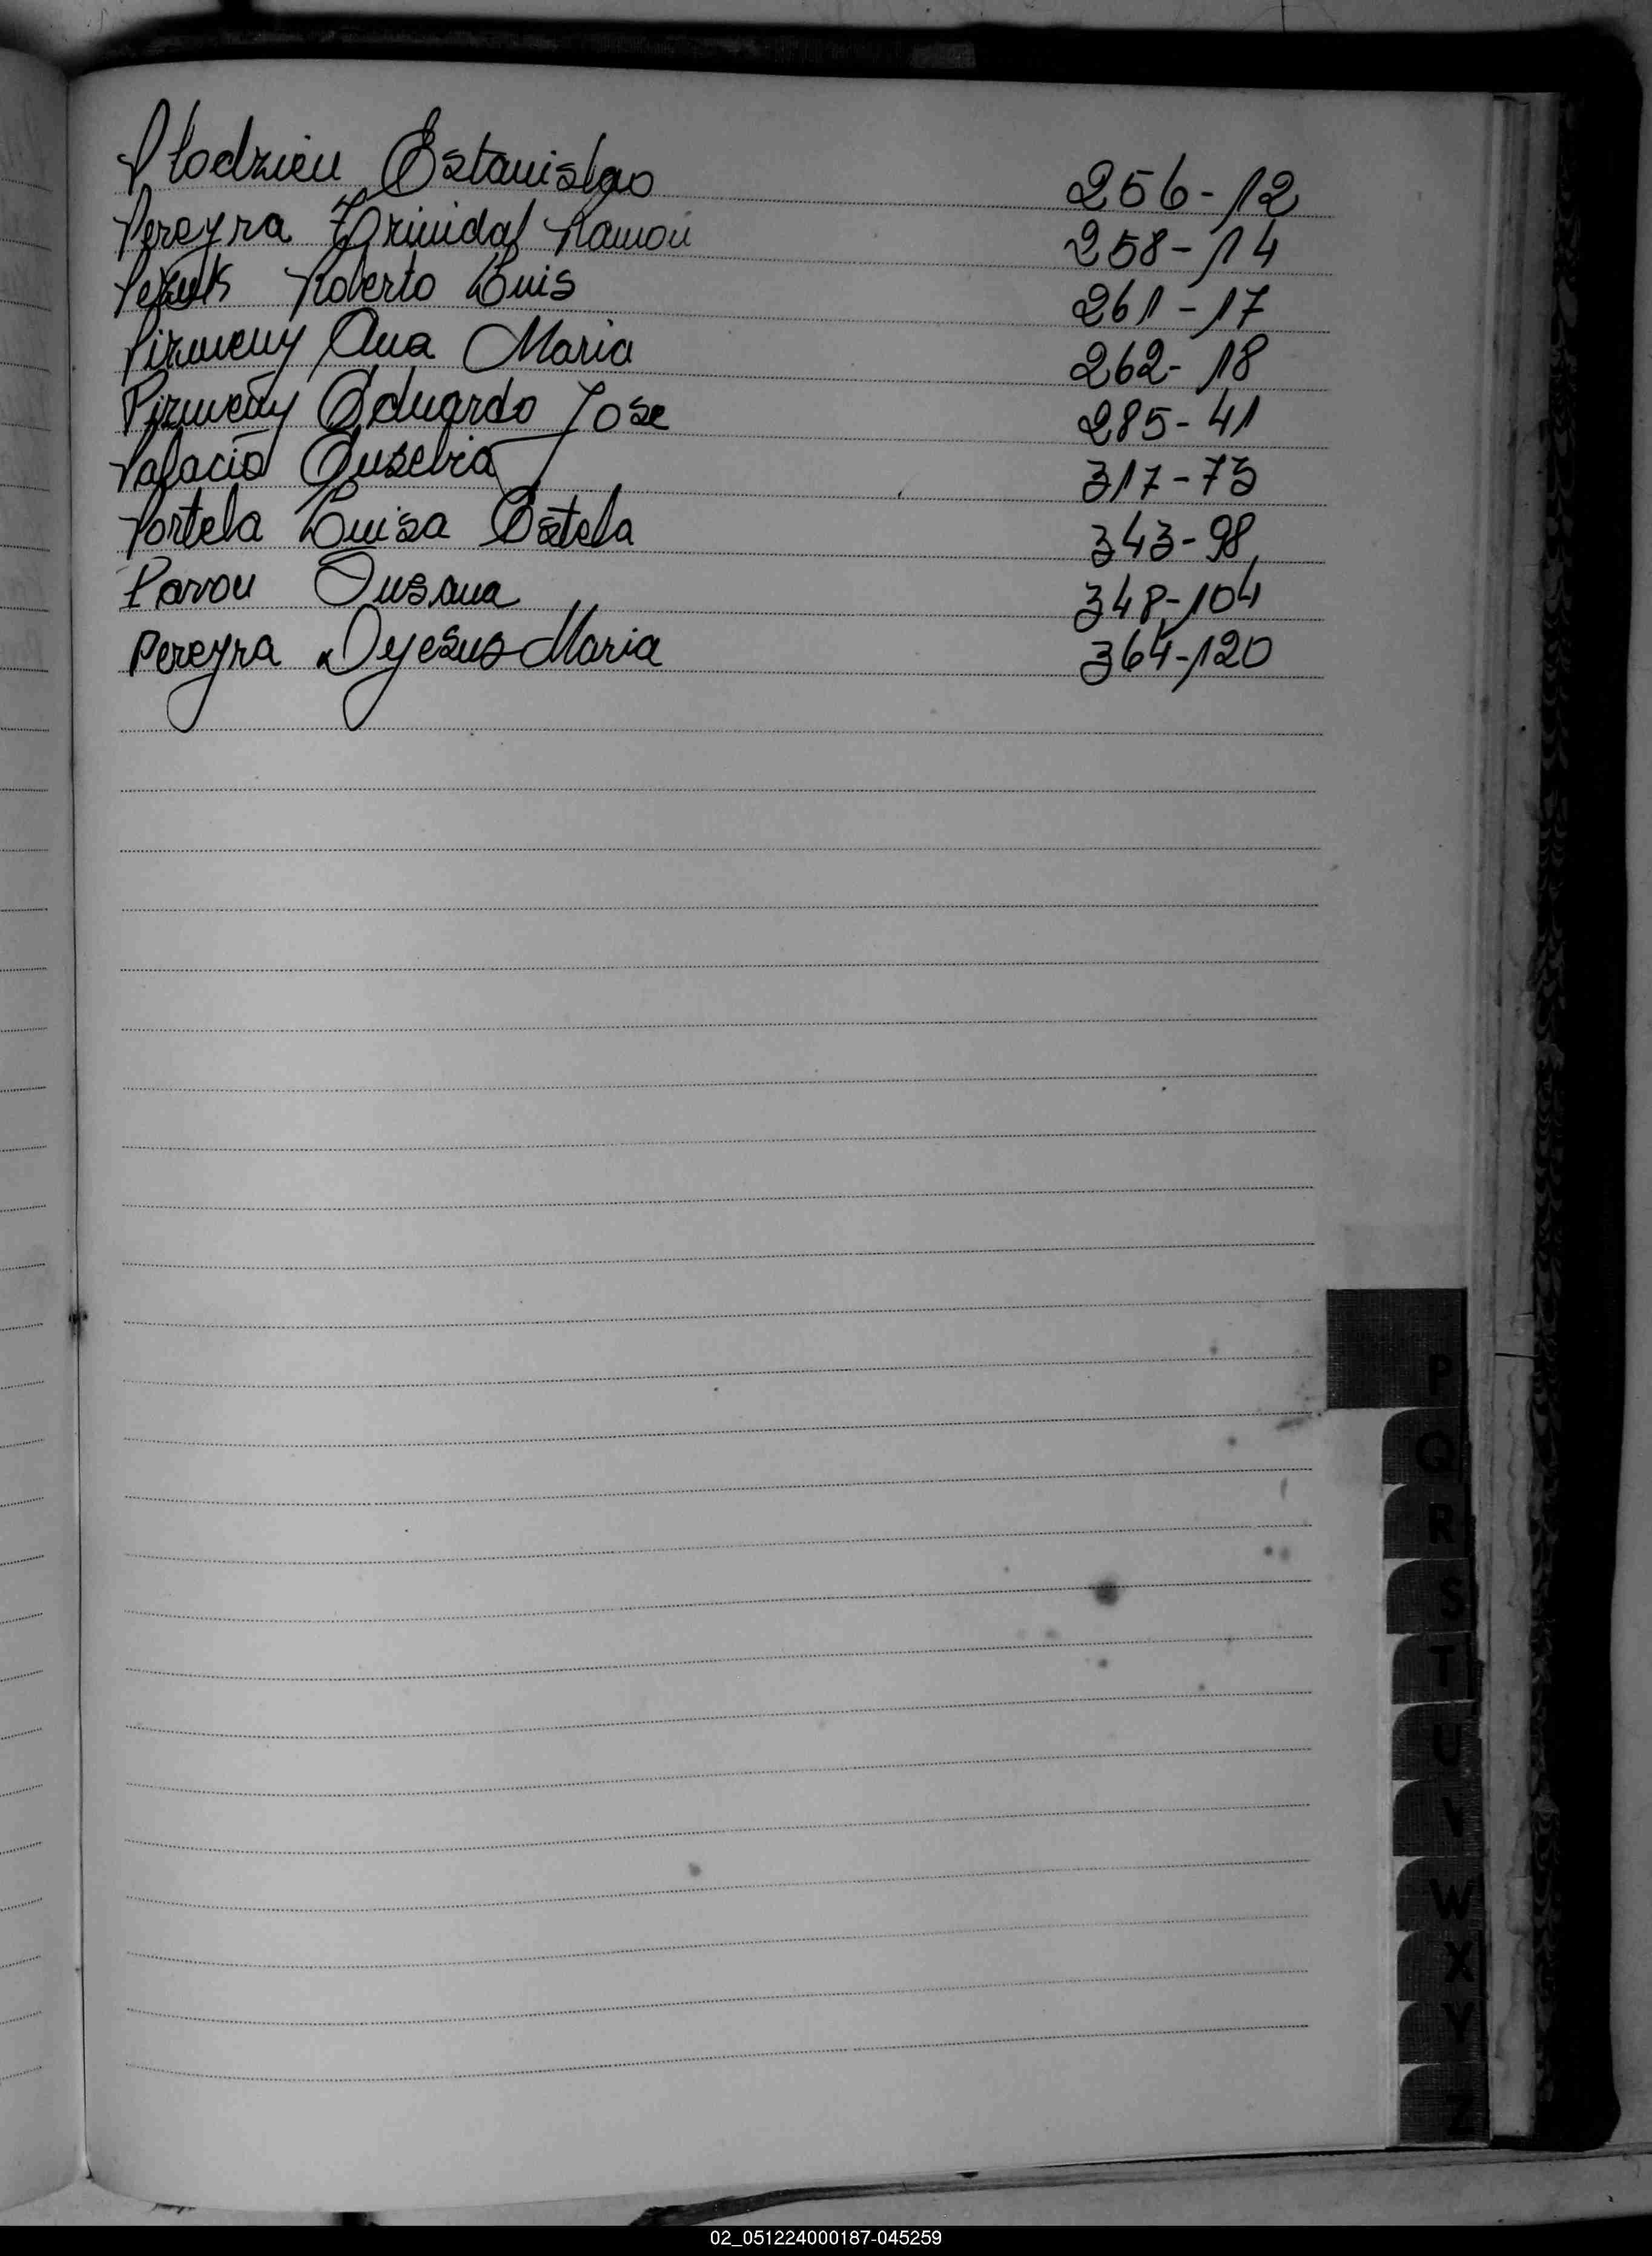 Plodzieu Estanislao 256-12
Pereyra Trinidad Ramon 258-14
Roberto Luis 261-17
Pizmeny Ana Maria 262-18
Pizmeny Eduardo Jose 285-41
Palacio Eusebia 317-73
Portela Luisa Estela 343-98
Pavon Susana 348-104
Pereyra Dyesus Maria 364-120
P
Q
R
S
T
U
V
W
X
Y
Z
02_051224000187-045259